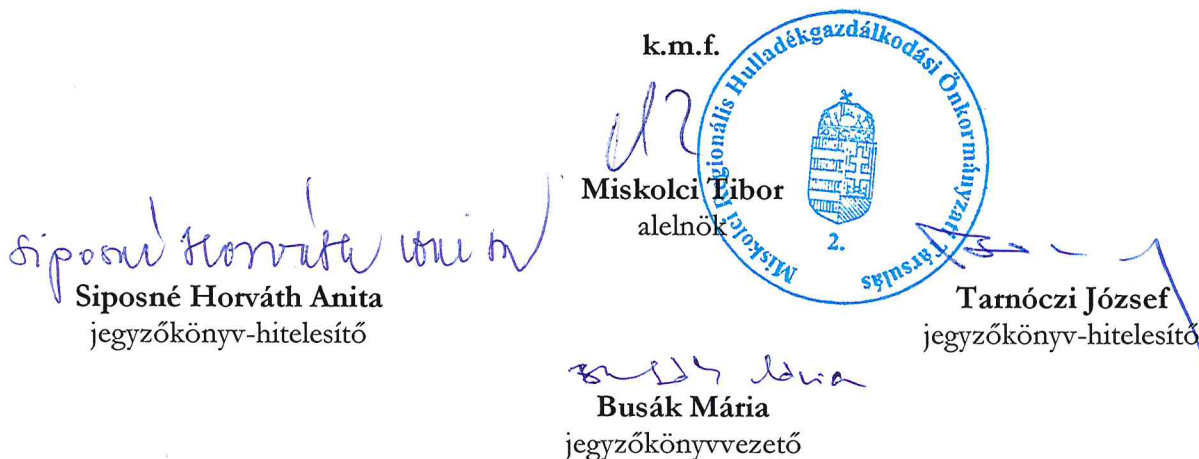 k.m.f.
Miskolci Regionális Hulladékgazdálkodási Önkormányzati Társulás
2.
Miskolci Tibor
alelnök
Siposné Horváth Anita
Siposné Horváth Anita
jegyzőkönyv-hitelesítő
Tarnóczi József
jegyzőkönyv-hitelesítő
Busák Mária
Busák Mária
jegyzőkönyvvezető